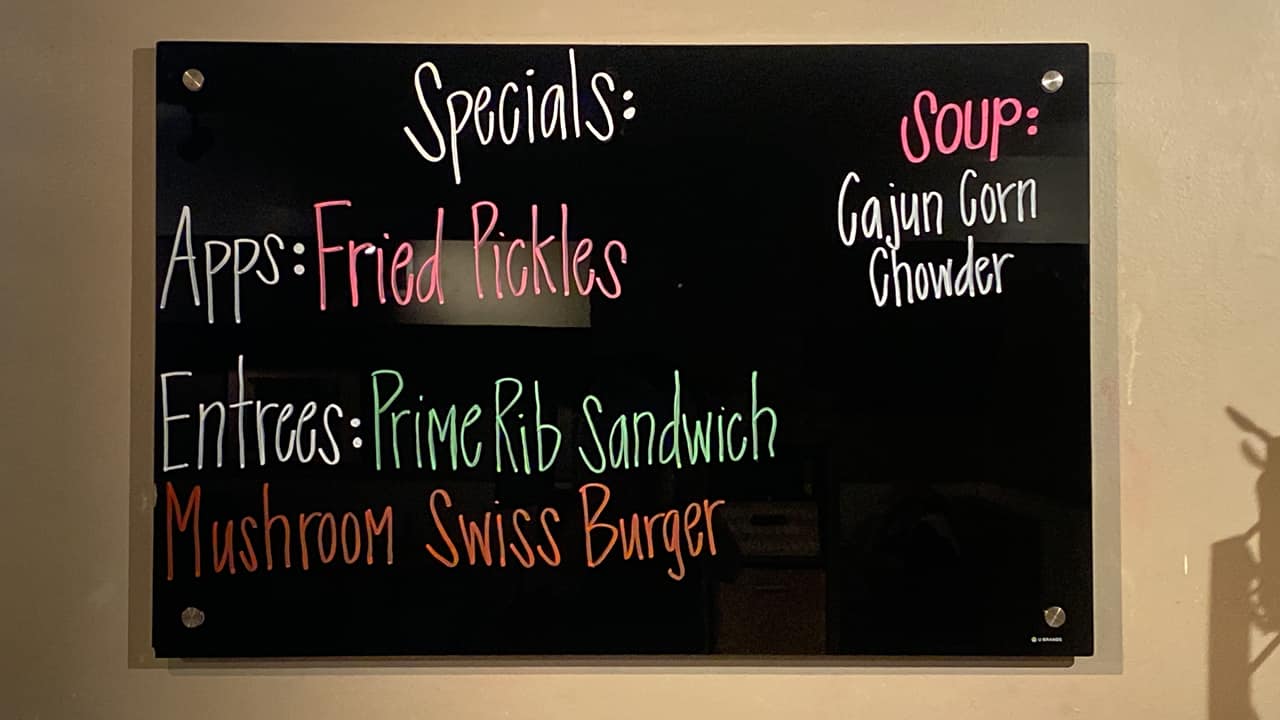 Specials:
Apps: Fried Pickles
Entrees: Prime Rib Sandwich
Mushroom Swiss Burger
Soup:
Cajun Corn
Chowder
U BRANDS